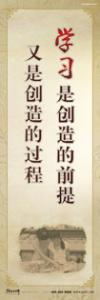 学习是创造的前提
又是创造的过程